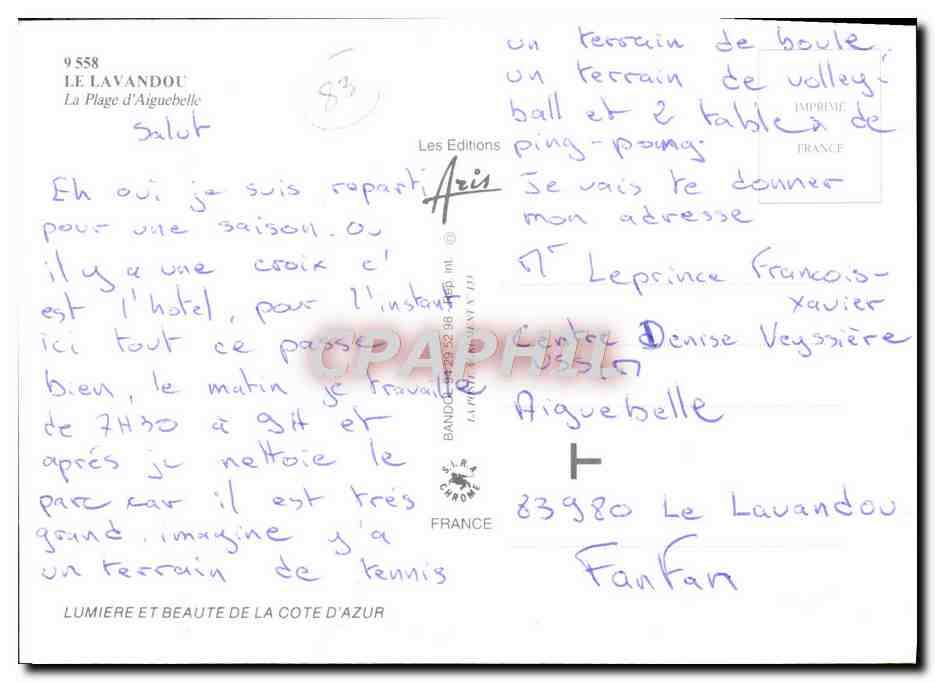 9 558
LE LAVANDOU
La Plage d'Aiguebelle
83
Salut
Eh oui je suis reparti
pour une saison. Ou
il y a une croix c'
est l'hotel, pour l'instant
ici tout ce passe
bien, le matin je travaille
de 7H30 à 9H et
aprés je nettoie le
parc car il est trés
grand. imagine y'a
un terrain de tennis
LUMIERE ET BEAUTE DE LA COTE D'AZUR
Les Editions
Aris
BANDOL 94 29 52 98 - Rep. int. ©
S.I.R.A. CHROME
FRANCE
un terrain de boule,
un terrain de volley-
ball et 2 tables de
ping-pong.
Je vais te donner
mon adresse
IMPRIMÉ
FRANCE
Mr Leprince Francois-
Xavier
Centre Denise Veyssière
Aiguebelle
83980 Le Lavandou
FanFan
CPAPHIL